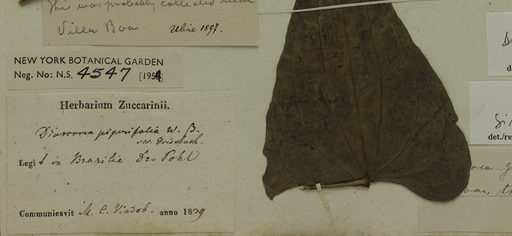 This was probably collected near
Villa Boa Uline 1897.
NEW YORK BOTANICAL GARDEN
Neg. No: N.S. 4547 [195
Herbarium Zuccarinii.
Dioscorea piperifolia W. β.
sec. Griesbach.
Legit in Brasilia Dr. Pohl
Communicavit M. C. Vindob. anno 1839
det./re